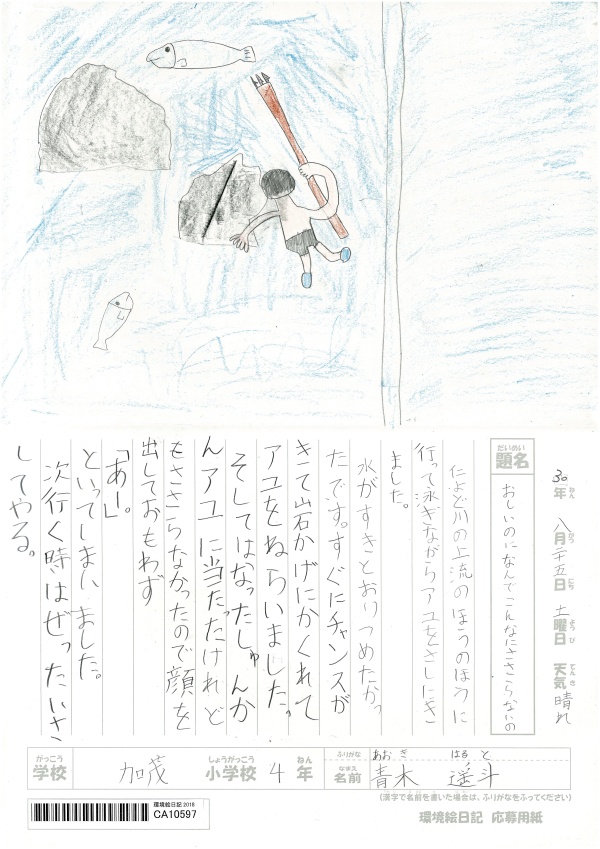 30年 八月二十五日 土曜日 天気 晴れ
ねん がつ にち ようび てんき
だいめい
題名
おしいのになんでこんなにささらないの
によど川の上流のほうのほうに
行って泳ぎながらアユをさしにいき
ました。
水がすきとおりつめたかっ
たです。すぐにチャンスが
きて岩かげにかくれて
アユをねらいました。
そしてはなったしゅんか
んアユに当たったけれど
もささらなかったので顔を
出しておもわず
「あー。」
といってしまいました。
次行く時はぜったいさ
してやる。
がっこう しょうがっこう ねん ふりがな あおき はると
学校 加茂 小学校 4年 なまえ 名前 青木 遥斗
(漢字で名前を書いた場合は、ふりがなをふってください)
環境絵日記 応募用紙
環境絵日記 2018
CA10597